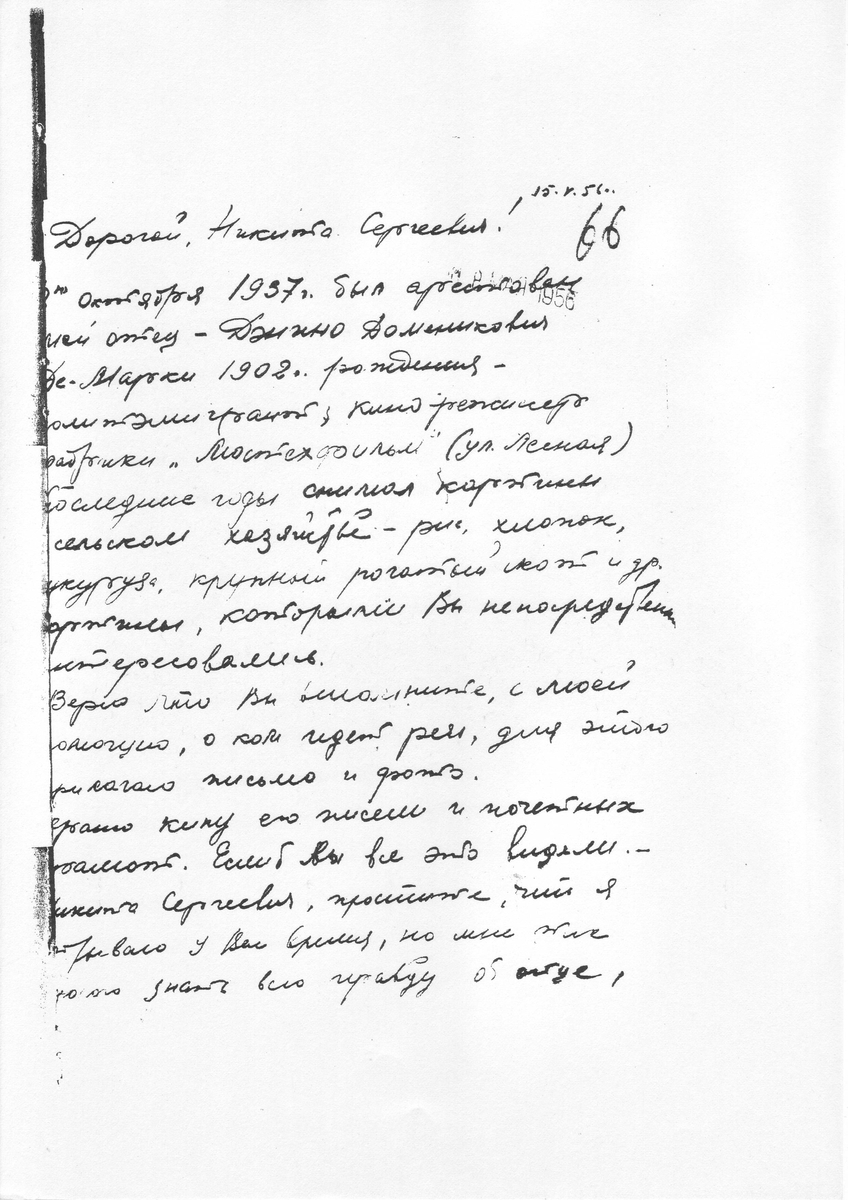 15.V.56г.
Дорогой, Никита Сергеевич!
66
октября 1937г. был арестован
1956
отец – Джино Доменикович
Де-Марки 1902г. рождения –
олитэмигрант, кино-режиссер
абрики „Мостехфильм" (ул. Лесная)
последние годы снимал картины
сельском хозяйстве – рис, хлопок,
укуруза, крупный рогатый скот и др.
артины, которыми Вы непосредственн
нтересовались.
Верю что Вы вспомните, с моей
омощью, о ком идет речь, для этого
рилагаю письмо и фото.
кипу его писем и почетных
рамот. Еслиб Вы все это видели. –
икита Сергеевич, простите, что я
трываю у Вас время, но мне так
знать всю правду об отце,